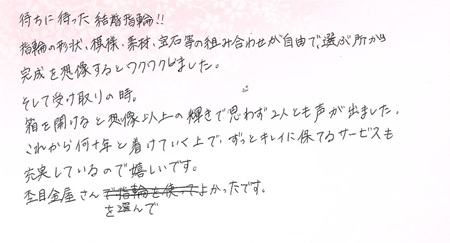 待ちに待った結婚指輪!!
指輪の形状、模様、素材、宝石等の組み合わせが自由で、選ぶ所から
完成を想像するとワクワクしました。
そして受け取りの時。
箱を開けると想像以上の輝きで思わず2人とも声が出ました。
これから何十年と着けていく上で、ずっとキレイに保てるサービスも
充実しているので嬉しいです。
杢目金屋さんで指輪を使ってよかったです。
を選んで